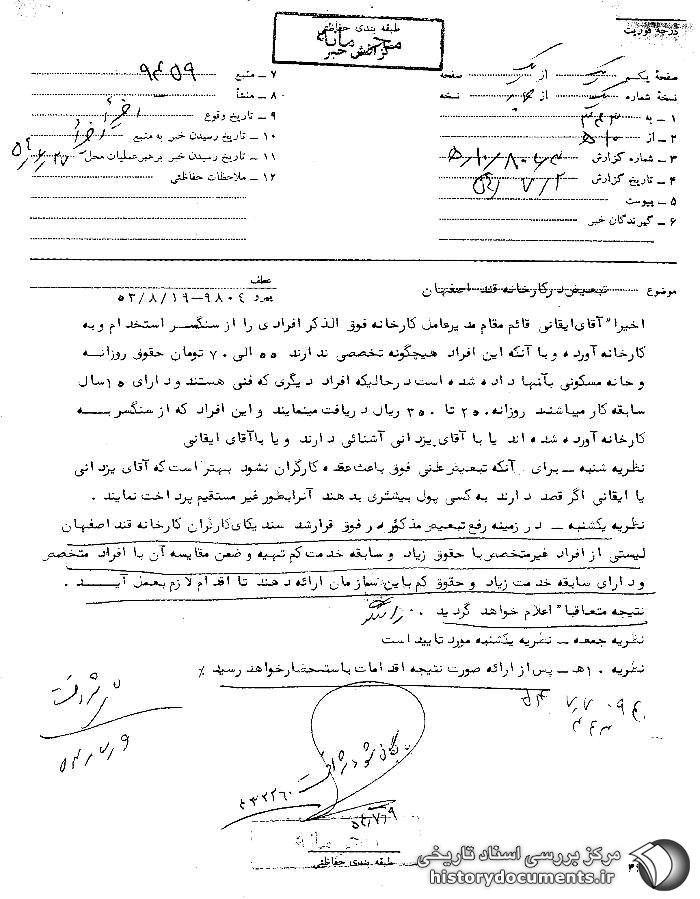 درجه فوریت
طبقه بندی حفاظتی
گزارش خبر
صفحه یکم از صفحه
نسخه شماره از نسخه
۱ ـ به ۳۴۳
۲ ـ از ۱۰ ه
۳ ـ شماره گزارش
۴ ـ تاریخ گزارش ۵۴/۷/۲
۵ ـ پیوست
۶ ـ گیرندگان خبر
۷ ـ منبع ۹۴۵۹
۸ ـ منشأ
۹ ـ تاریخ وقوع اخیراً
۱۰ ـ تاریخ رسیدن خبر به منبع اخیراً
۱۱ ـ تاریخ رسیدن خبر برهبر عملیات محل
۱۲ ـ ملاحظات حفاظتی
موضوع تبعیض در کارخانه قند اصفهان
عطف
پیرو ۹۸۰۴-۵۳/۸/۱۹
اخیرا" آقای ایقانی قائم مقام مدیرعامل کارخانه فوق الذکر افرادی را از سنگسر استخدام و به
کارخانه آورده و با آنکه این افراد هیچگونه تخصصی ندارند ۵۵ الی ۷۰ تومان حقوق روزانه
و خانه مسکونی بآنها داده شده است در حالیکه افراد دیگری که فنی هستند و دارای ۱۵ سال
سابقه کار میباشند روزانه ۲۵۰ تا ۳۵۰ ریال دریافت مینمایند و این افراد که از سنگسر به
کارخانه آورده شده اند یا با آقای یزدانی آشنائی دارند و یا با آقای ایقانی
نظریه شنبه ـ برای آنکه تبعیض علنی فوق باعث عقده کارگران نشود بهتر است که آقای یزدانی
یا ایقانی اگر قصد دارند به کسی پول بیشتری بدهند آنرا بطور غیر مستقیم پرداخت نمایند .
نظریه یکشنبه ـ در زمینه رفع تبعیض مذکور در فوق قرار شد سندیکای کارگران کارخانه قند اصفهان
لیستی از افراد غیر متخصص با حقوق زیاد و سابقه خدمت کم تهیه و ضمن مقایسه آن با افراد متخصص
و دارای سابقه خدمت زیاد و حقوق کم باین سازمان ارائه دهند تا اقدام لازم بعمل آید .
نتیجه متعاقبا" اعلام خواهد گردید .
نظریه جمعه ـ نظریه یکشنبه مورد تایید است
نظریه ۱۰ هـ ـ پس از ارائه صورت نتیجه اقدامات باستحضار خواهد رسید ٪
۵۴/۷/۹
۵۴/۷/۹
طبقه بندی حفاظتی
مرکز بررسی اسناد تاریخی
historydocuments.ir